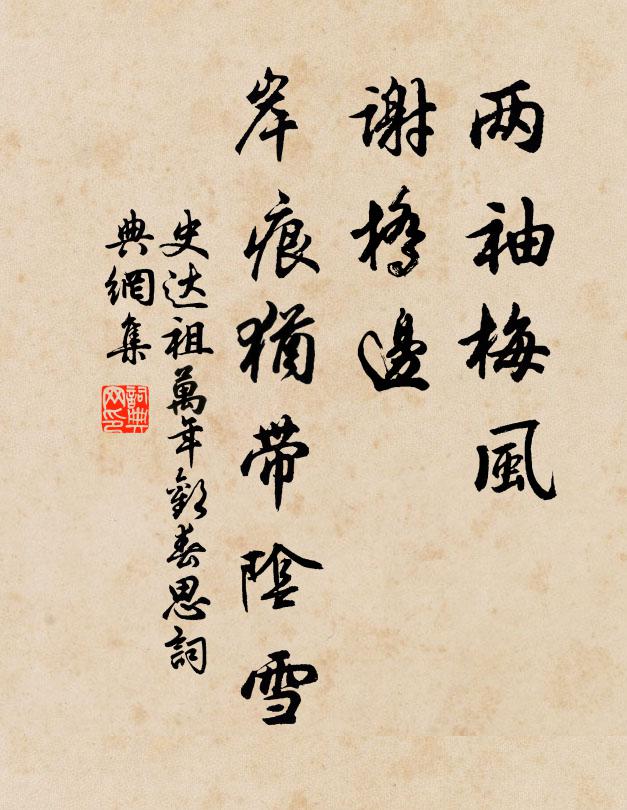 两袖梅風
謝橋邊
岸痕猶帶陰雪
史达祖萬年歡春思詞
典網集
詞典
网印